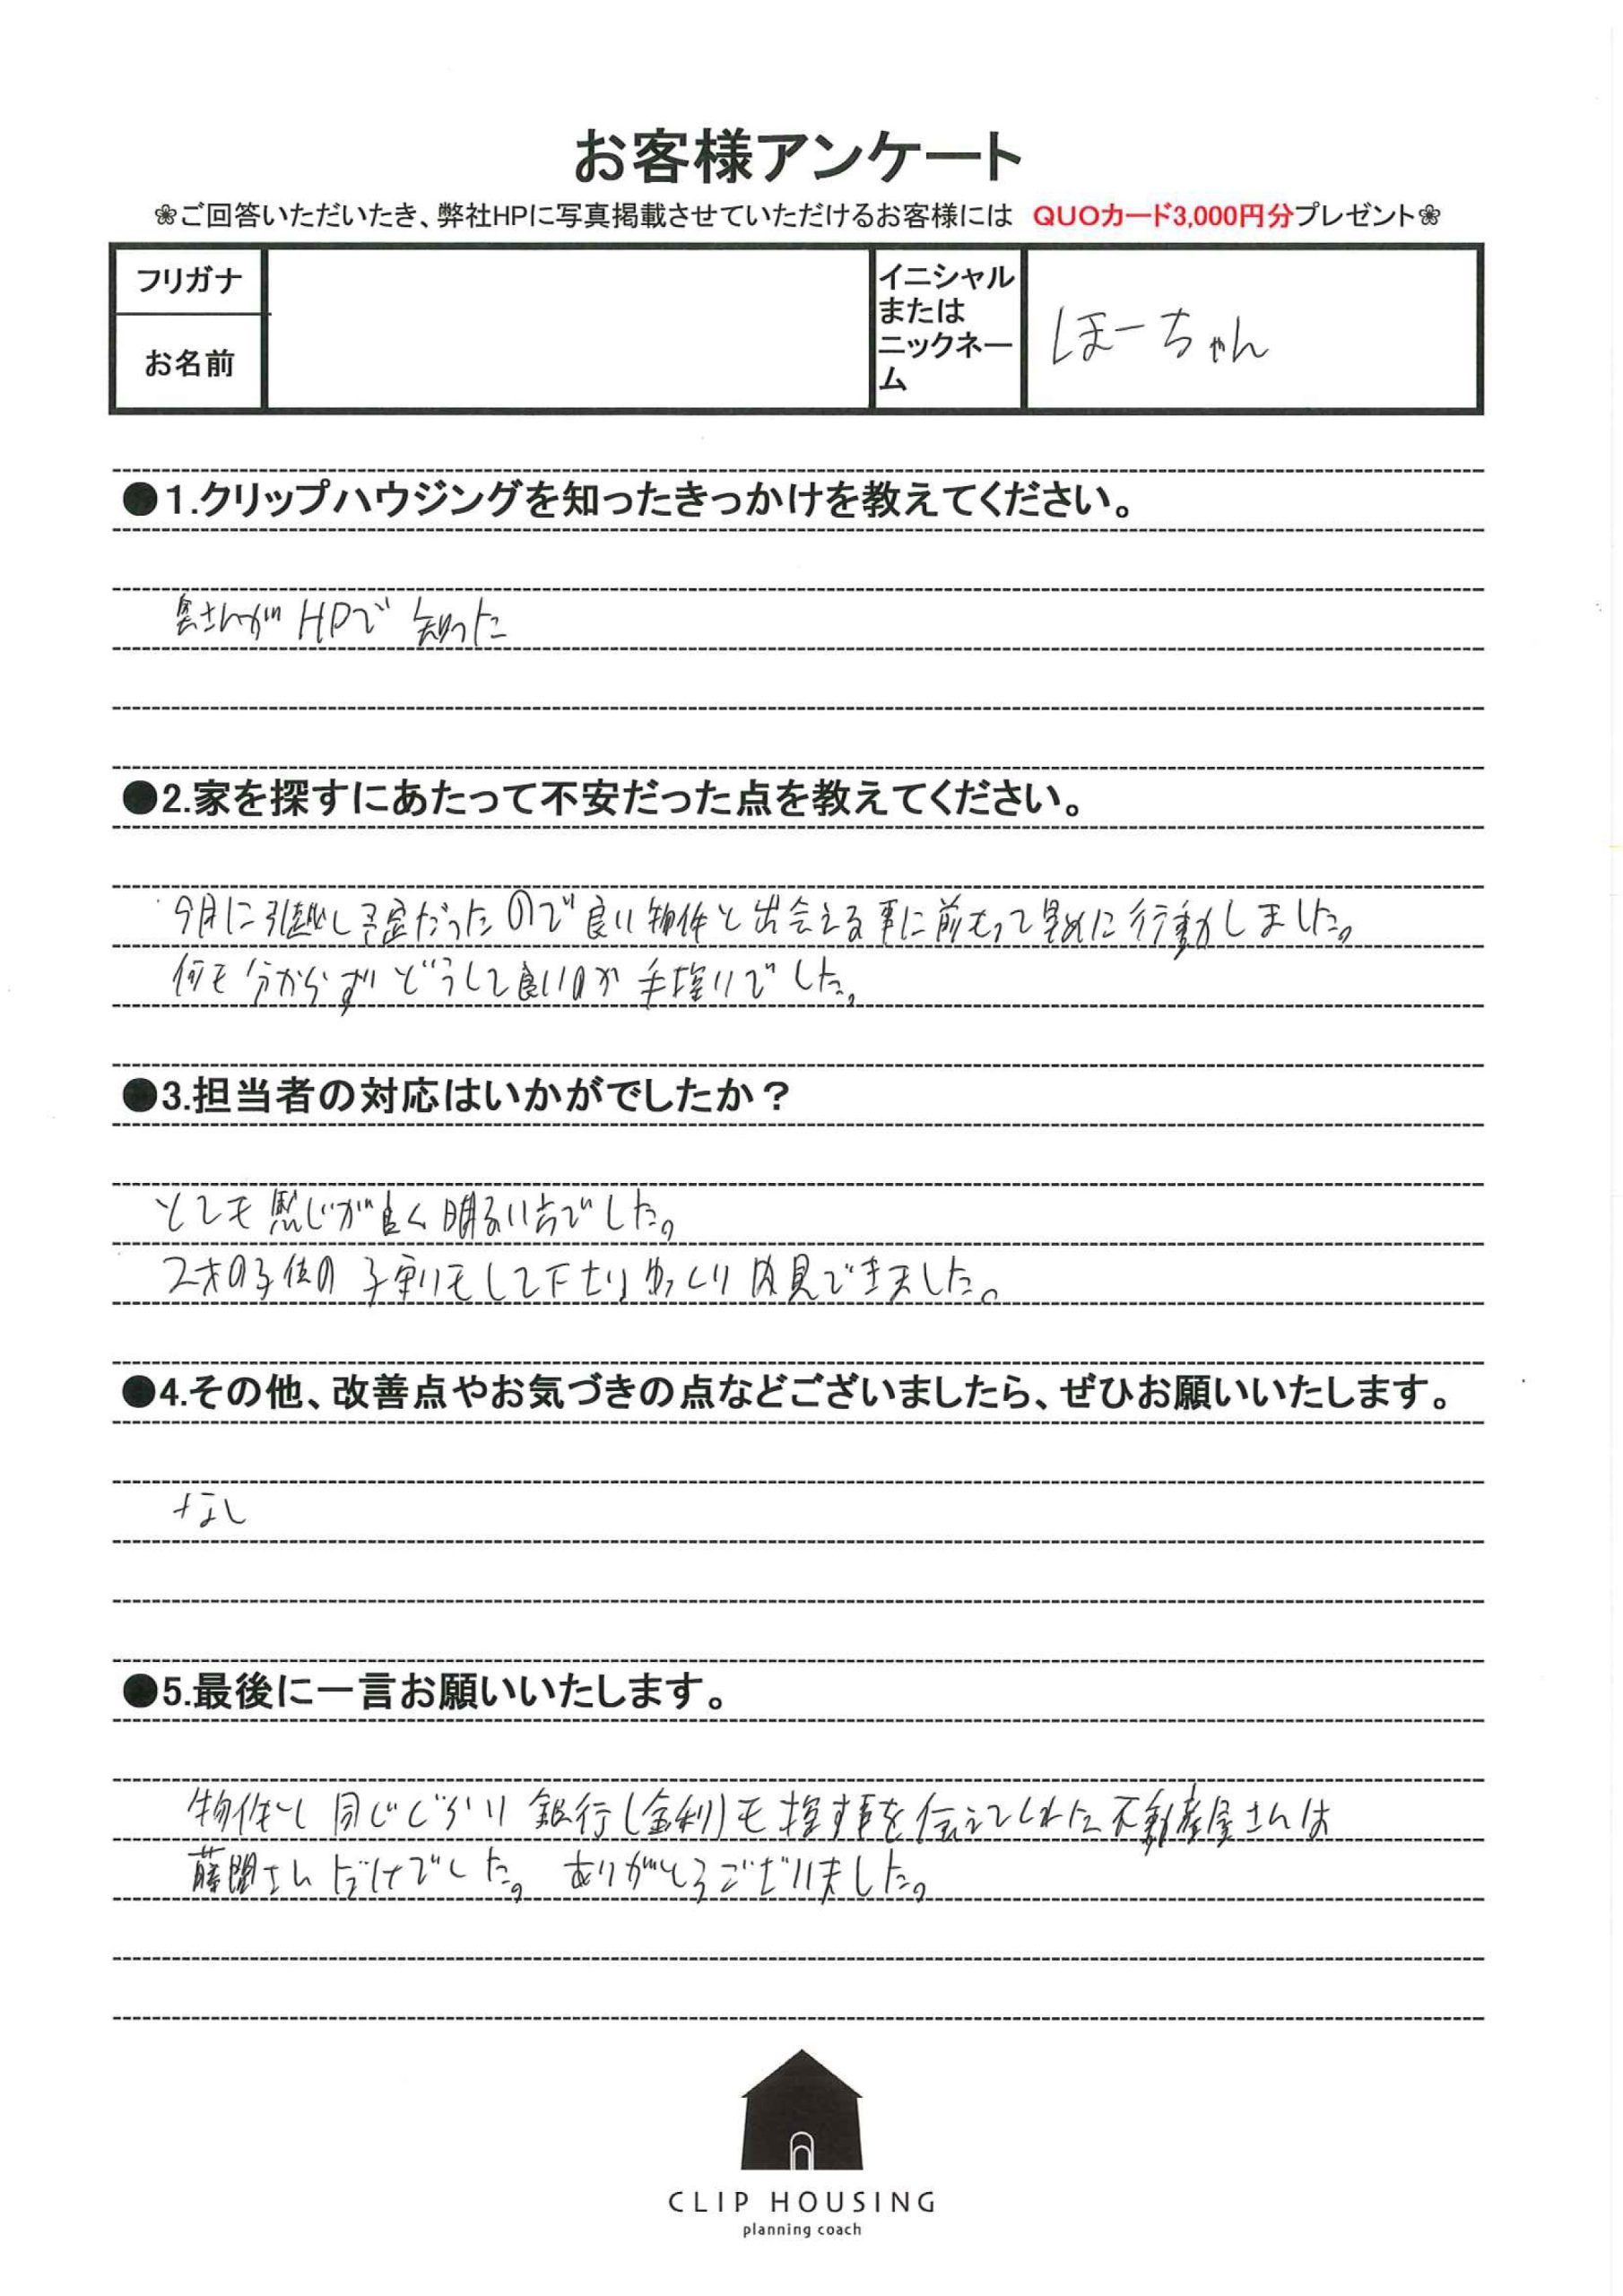 お客様アンケート
❀ご回答いただいたき、弊社HPに写真掲載させていただけるお客様には QUOカード3,000円分プレゼント❀
フリガナ
お名前
イニシャル
または
ニックネー
ム
ほーちゃん
●1.クリップハウジングを知ったきっかけを教えてください。
奥さんがHPで知った
●2.家を探すにあたって不安だった点を教えてください。
9月に引越し予定だったので良い物件と出会える事に前もって早めに行動しました。
何も分からずどうして良いのか手探りでした。
●3.担当者の対応はいかがでしたか？
とても感じが良く明るい方でした。
2才の子供の子守りもして下さりゆっくり内見できました。
●4.その他、改善点やお気づきの点などございましたら、ぜひお願いいたします。
なし
●5.最後に一言お願いいたします。
物件と同じぐらい銀行(金利)も探す事を伝えてくれた不動産屋さんは
藤間さんだけでした。ありがとうございました。
CLIP HOUSING
planning coach